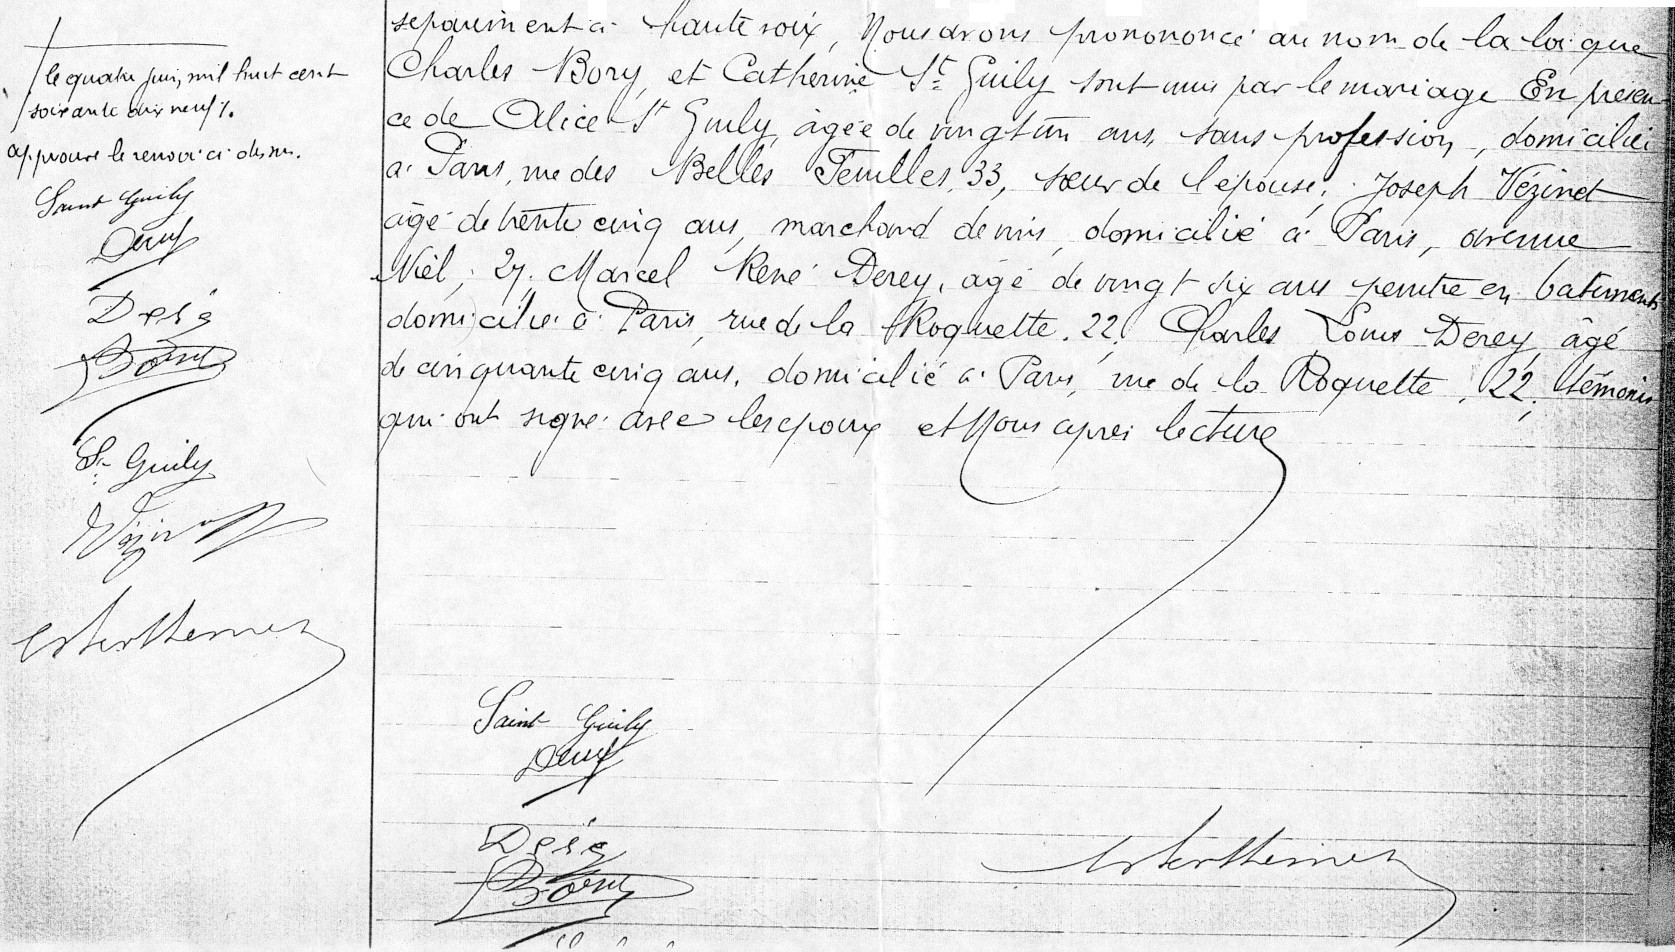 le quatre juin mil huit cent
soixante dix neuf %.
approuvé le renvoi ci dessus.
Saint Guily
Derey
Deré
Bory
St Guily
Vézinet
separément à haute voix, Nous avons pronononcé au nom de la loi que
Charles Bory, et Catherine St Guily sont unis par le mariage En présen
ce de Alice St Guily, âgée de vingt un ans, sans profession, domicilié
à Paris, rue des Belles Feuilles, 33, sœur de l'épouse; Joseph Vézinet
âgé de trente cinq ans, marchand de vins, domicilié à Paris, avenue
Niel, 27. Marcel René Derey, âgé de vingt six ans peintre en batiments
domicilié à Paris, rue de la Roquette. 22, Charles Louis Derey, âgé
de cinquante cinq ans, domicilié à Paris, rue de la Roquette, 22, témoins
qui ont signé avec les époux et Nous après lecture
Saint Guily
Derey
Deré
Bory